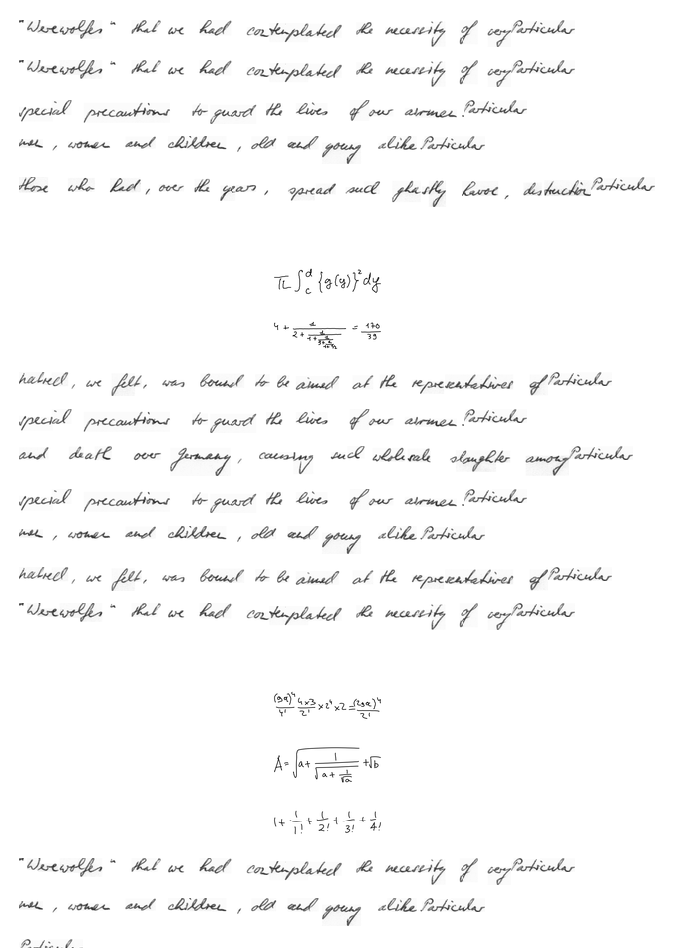 "Werewolfes" that we had contemplated the necessity of very Particular
"Werewolfes" that we had contemplated the necessity of very Particular
special precautions to guard the lives of our airmen. Particular
men, women and children, old and young alike Particular
those who had, over the years, spread such ghastly havoc, destruction Particular
π ∫_c^d {g(y)}² dy
4 + 1/(2 + 1/(1 + 1/(3 + 1/(1 + 1/2)))) = 170/39
hatred, we felt, was bound to be aimed at the representatives of Particular
special precautions to guard the lives of our airmen. Particular
and death over Germany, causing such wholesale slaughter among Particular
special precautions to guard the lives of our airmen. Particular
men, women and children, old and young alike Particular
hatred, we felt, was bound to be aimed at the representatives of Particular
"Werewolfes" that we had contemplated the necessity of very Particular
4×3/2! × 2⁴ × 2 =
A = √(a + 1/√(a + 1/√a)) + √b
1 + 1/1! + 1/2! + 1/3! + 1/4!
"Werewolfes" that we had contemplated the necessity of very Particular
men, women and children, old and young alike Particular
Particular